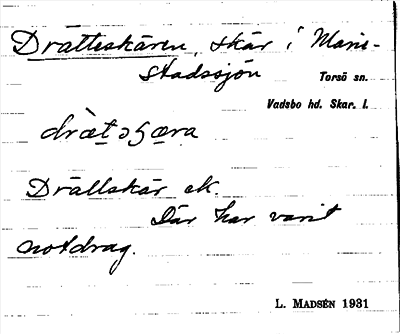 Drätteskären, skär i Marie-
stadssjön
Torsö sn.
Vadsbo hd. Skar. l.
Drällskär ek.
Där har varit
notdrag.
L. MADSÉN 1931